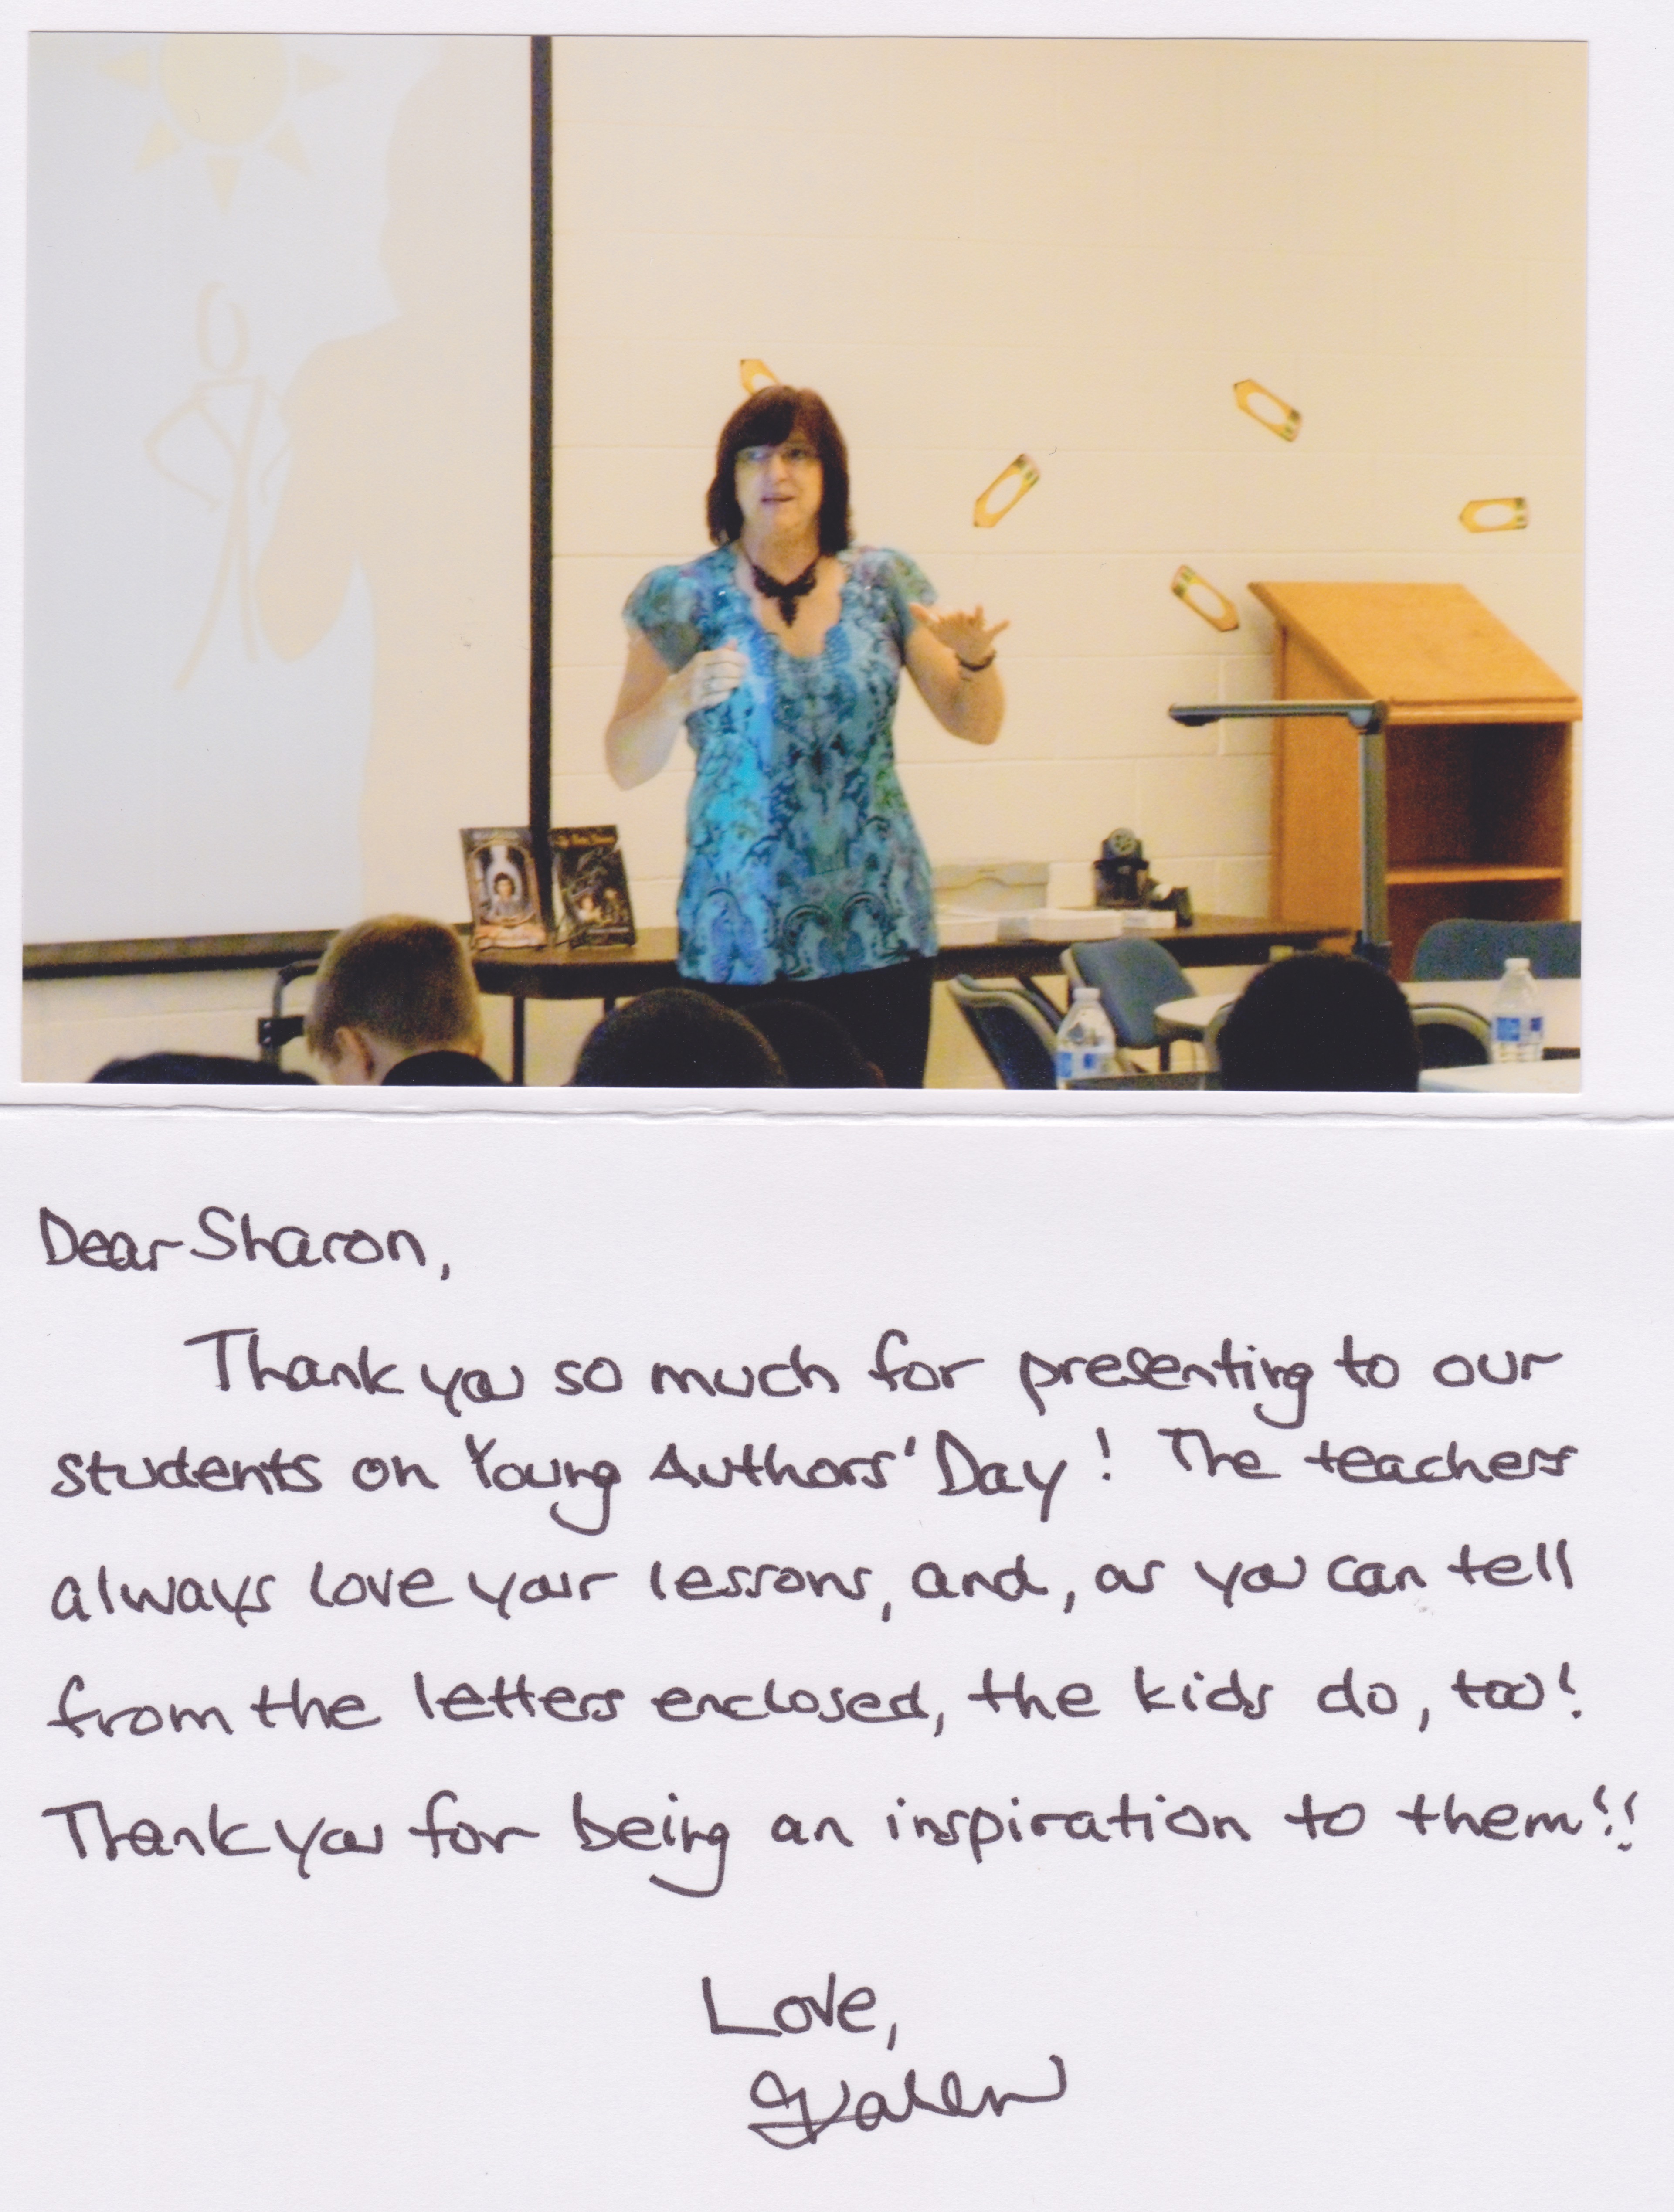 Dear Sharon,
Thank you so much for presenting to our
students on Young Authors' Day! The teachers
always love your lessons, and, as you can tell
from the letters enclosed, the kids do, too!
Thank you for being an inspiration to them!!
Love,